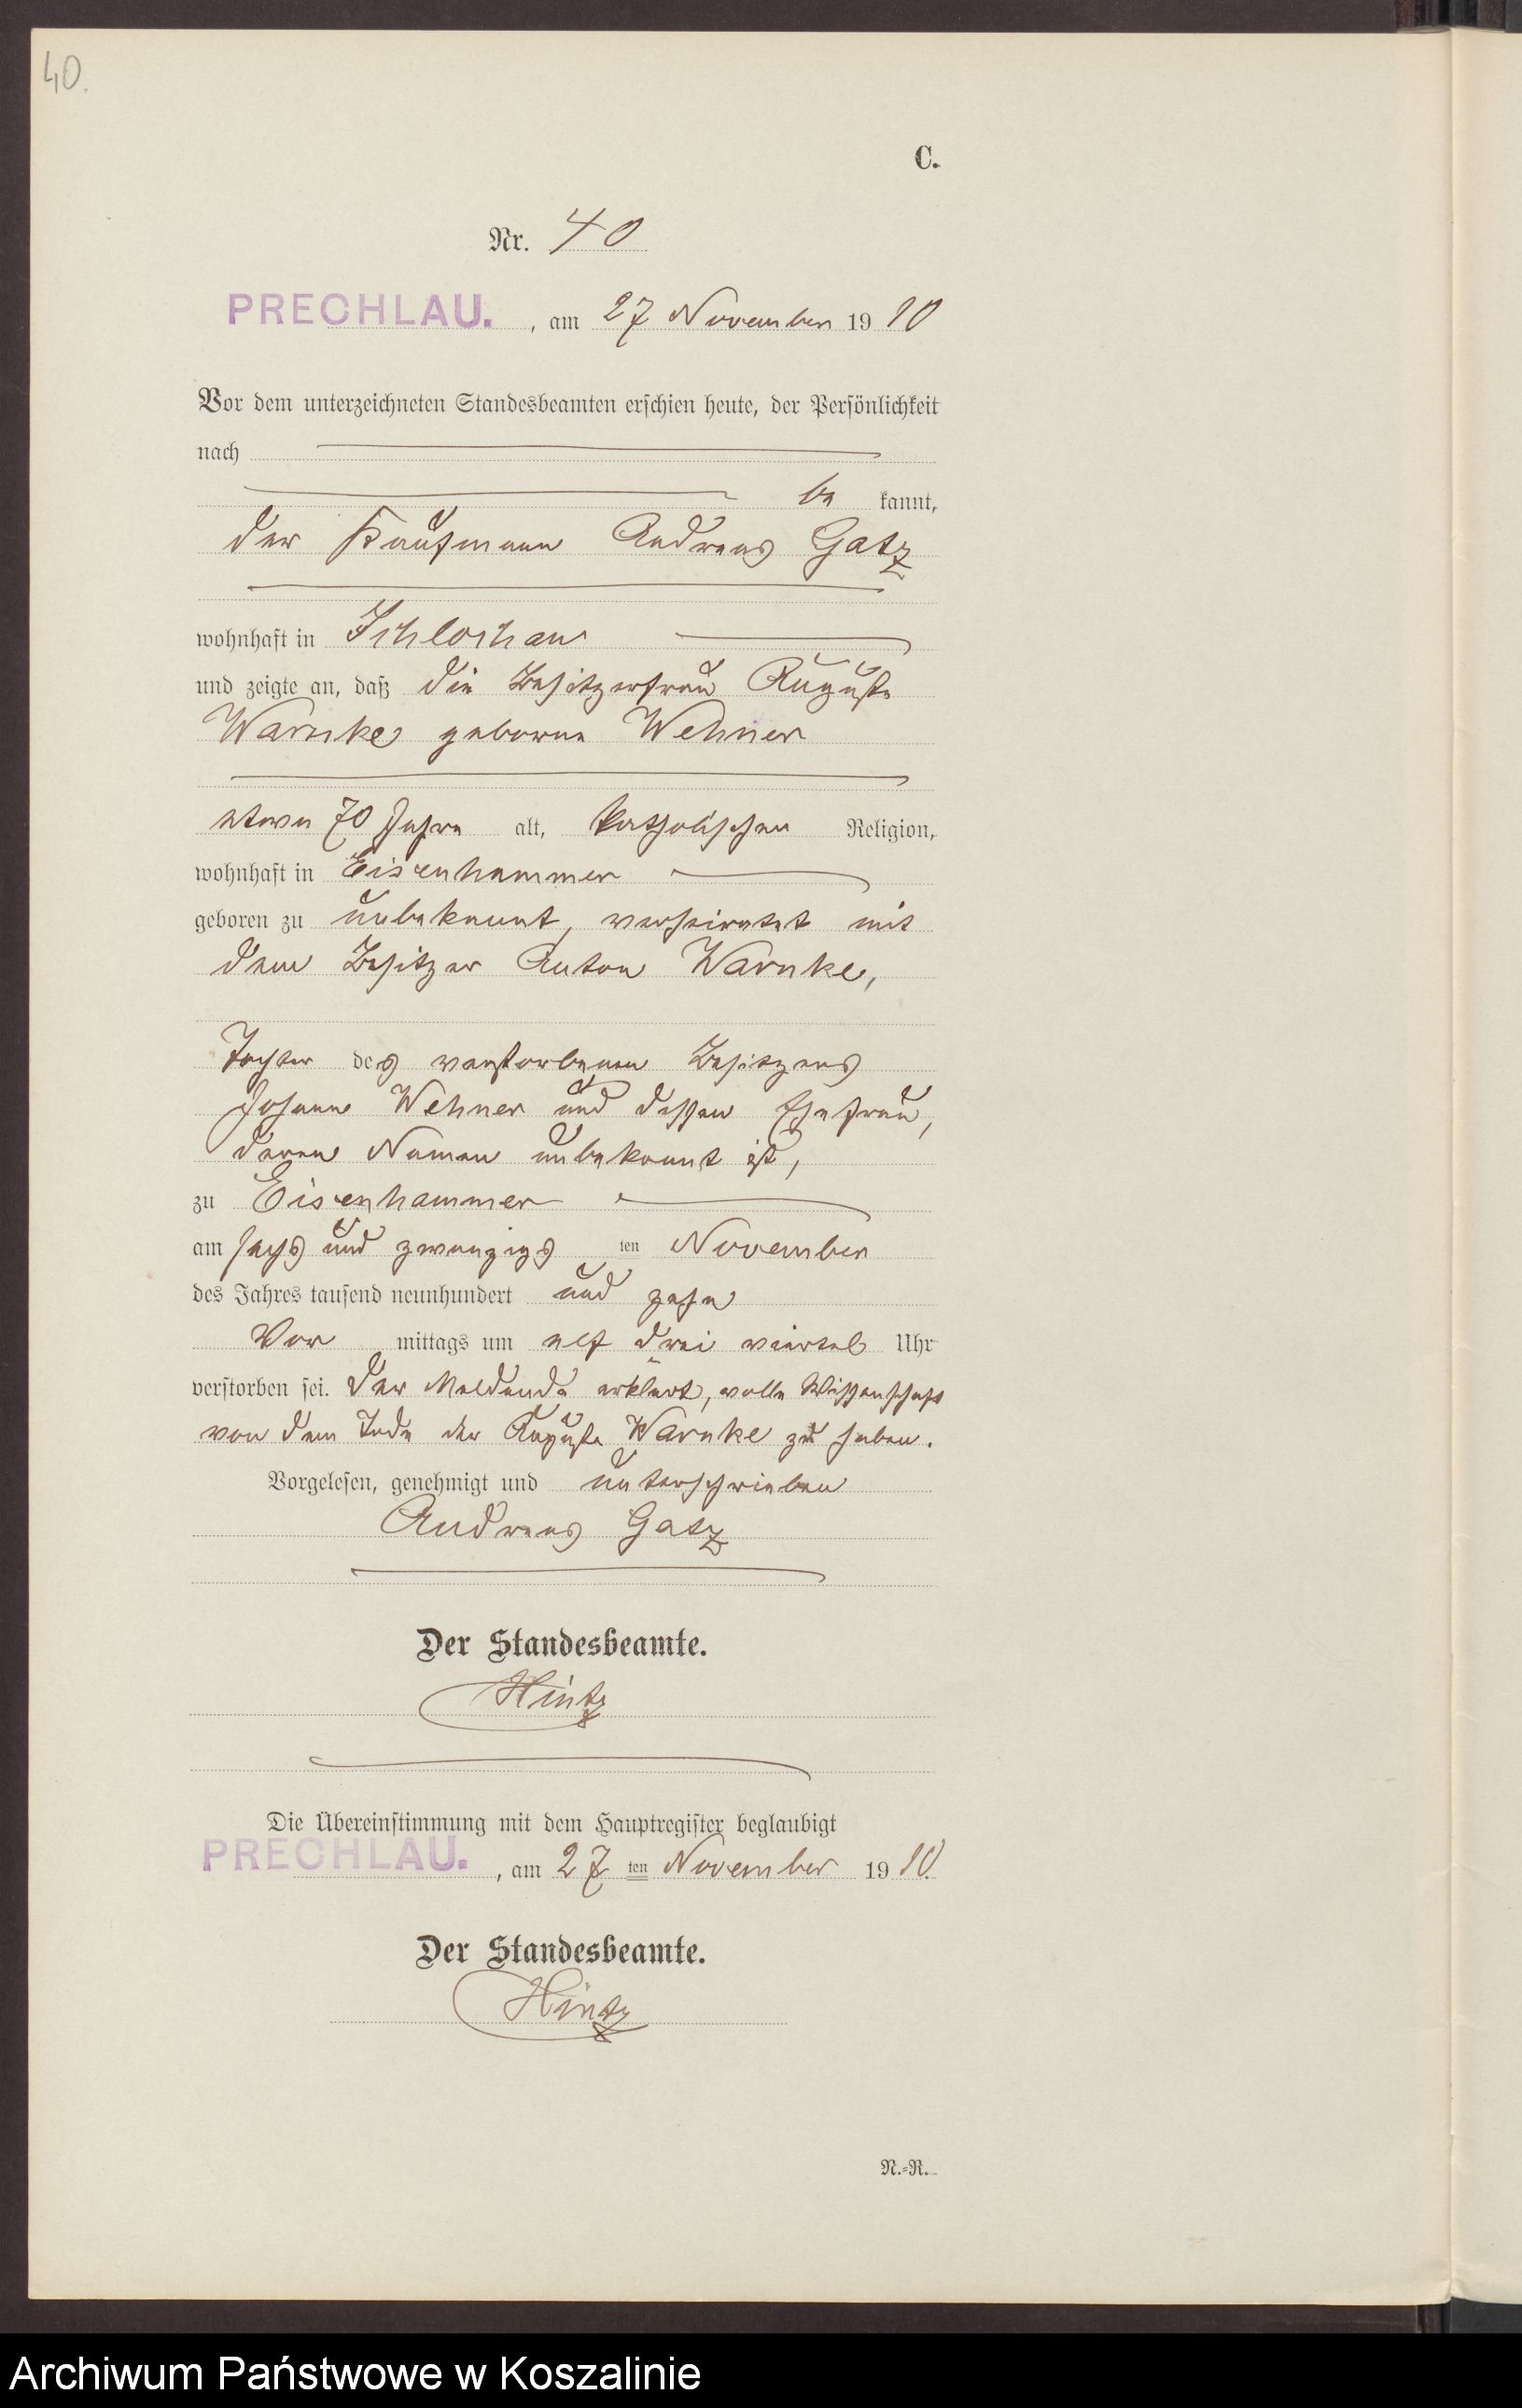 40.
C.
Nr. 40
PRECHLAU. , am 27 November 1910
Vor dem unterzeichneten Standesbeamten erschien heute, der Persönlichkeit
nach
be kannt,
der Kaufmann Andreas Gatz
wohnhaft in Schlochau
und zeigte an, daß die Besitzerfrau Auguste
Warnke geborne Wehner
etwa 70 Jahre alt, katholischer Religion,
wohnhaft in Eisenhammer
geboren zu unbekannt, verheiratet mit
dem Besitzer Anton Warnke,
Tochter des verstorbenen Besitzers
Johann Wehner und dessen Ehefrau,
deren Namen unbekannt ist,
zu Eisenhammer
am sechs und zwanzigs ten November
des Jahres tausend neunhundert und zehn
Vor mittags um elf drei viertel Uhr
verstorben sei. Der Meldende erklärt, volle Wissenschaft
von dem Tode der Auguste Warnke zu haben.
Vorgelesen, genehmigt und unterschrieben
Andreas Gatz
Der Standesbeamte.
Hintz
Die Übereinstimmung mit dem Hauptregister beglaubigt
PRECHLAU. , am 27 ten November 1910.
Der Standesbeamte.
Hintz
N.-R.
Archiwum Państwowe w Koszalinie